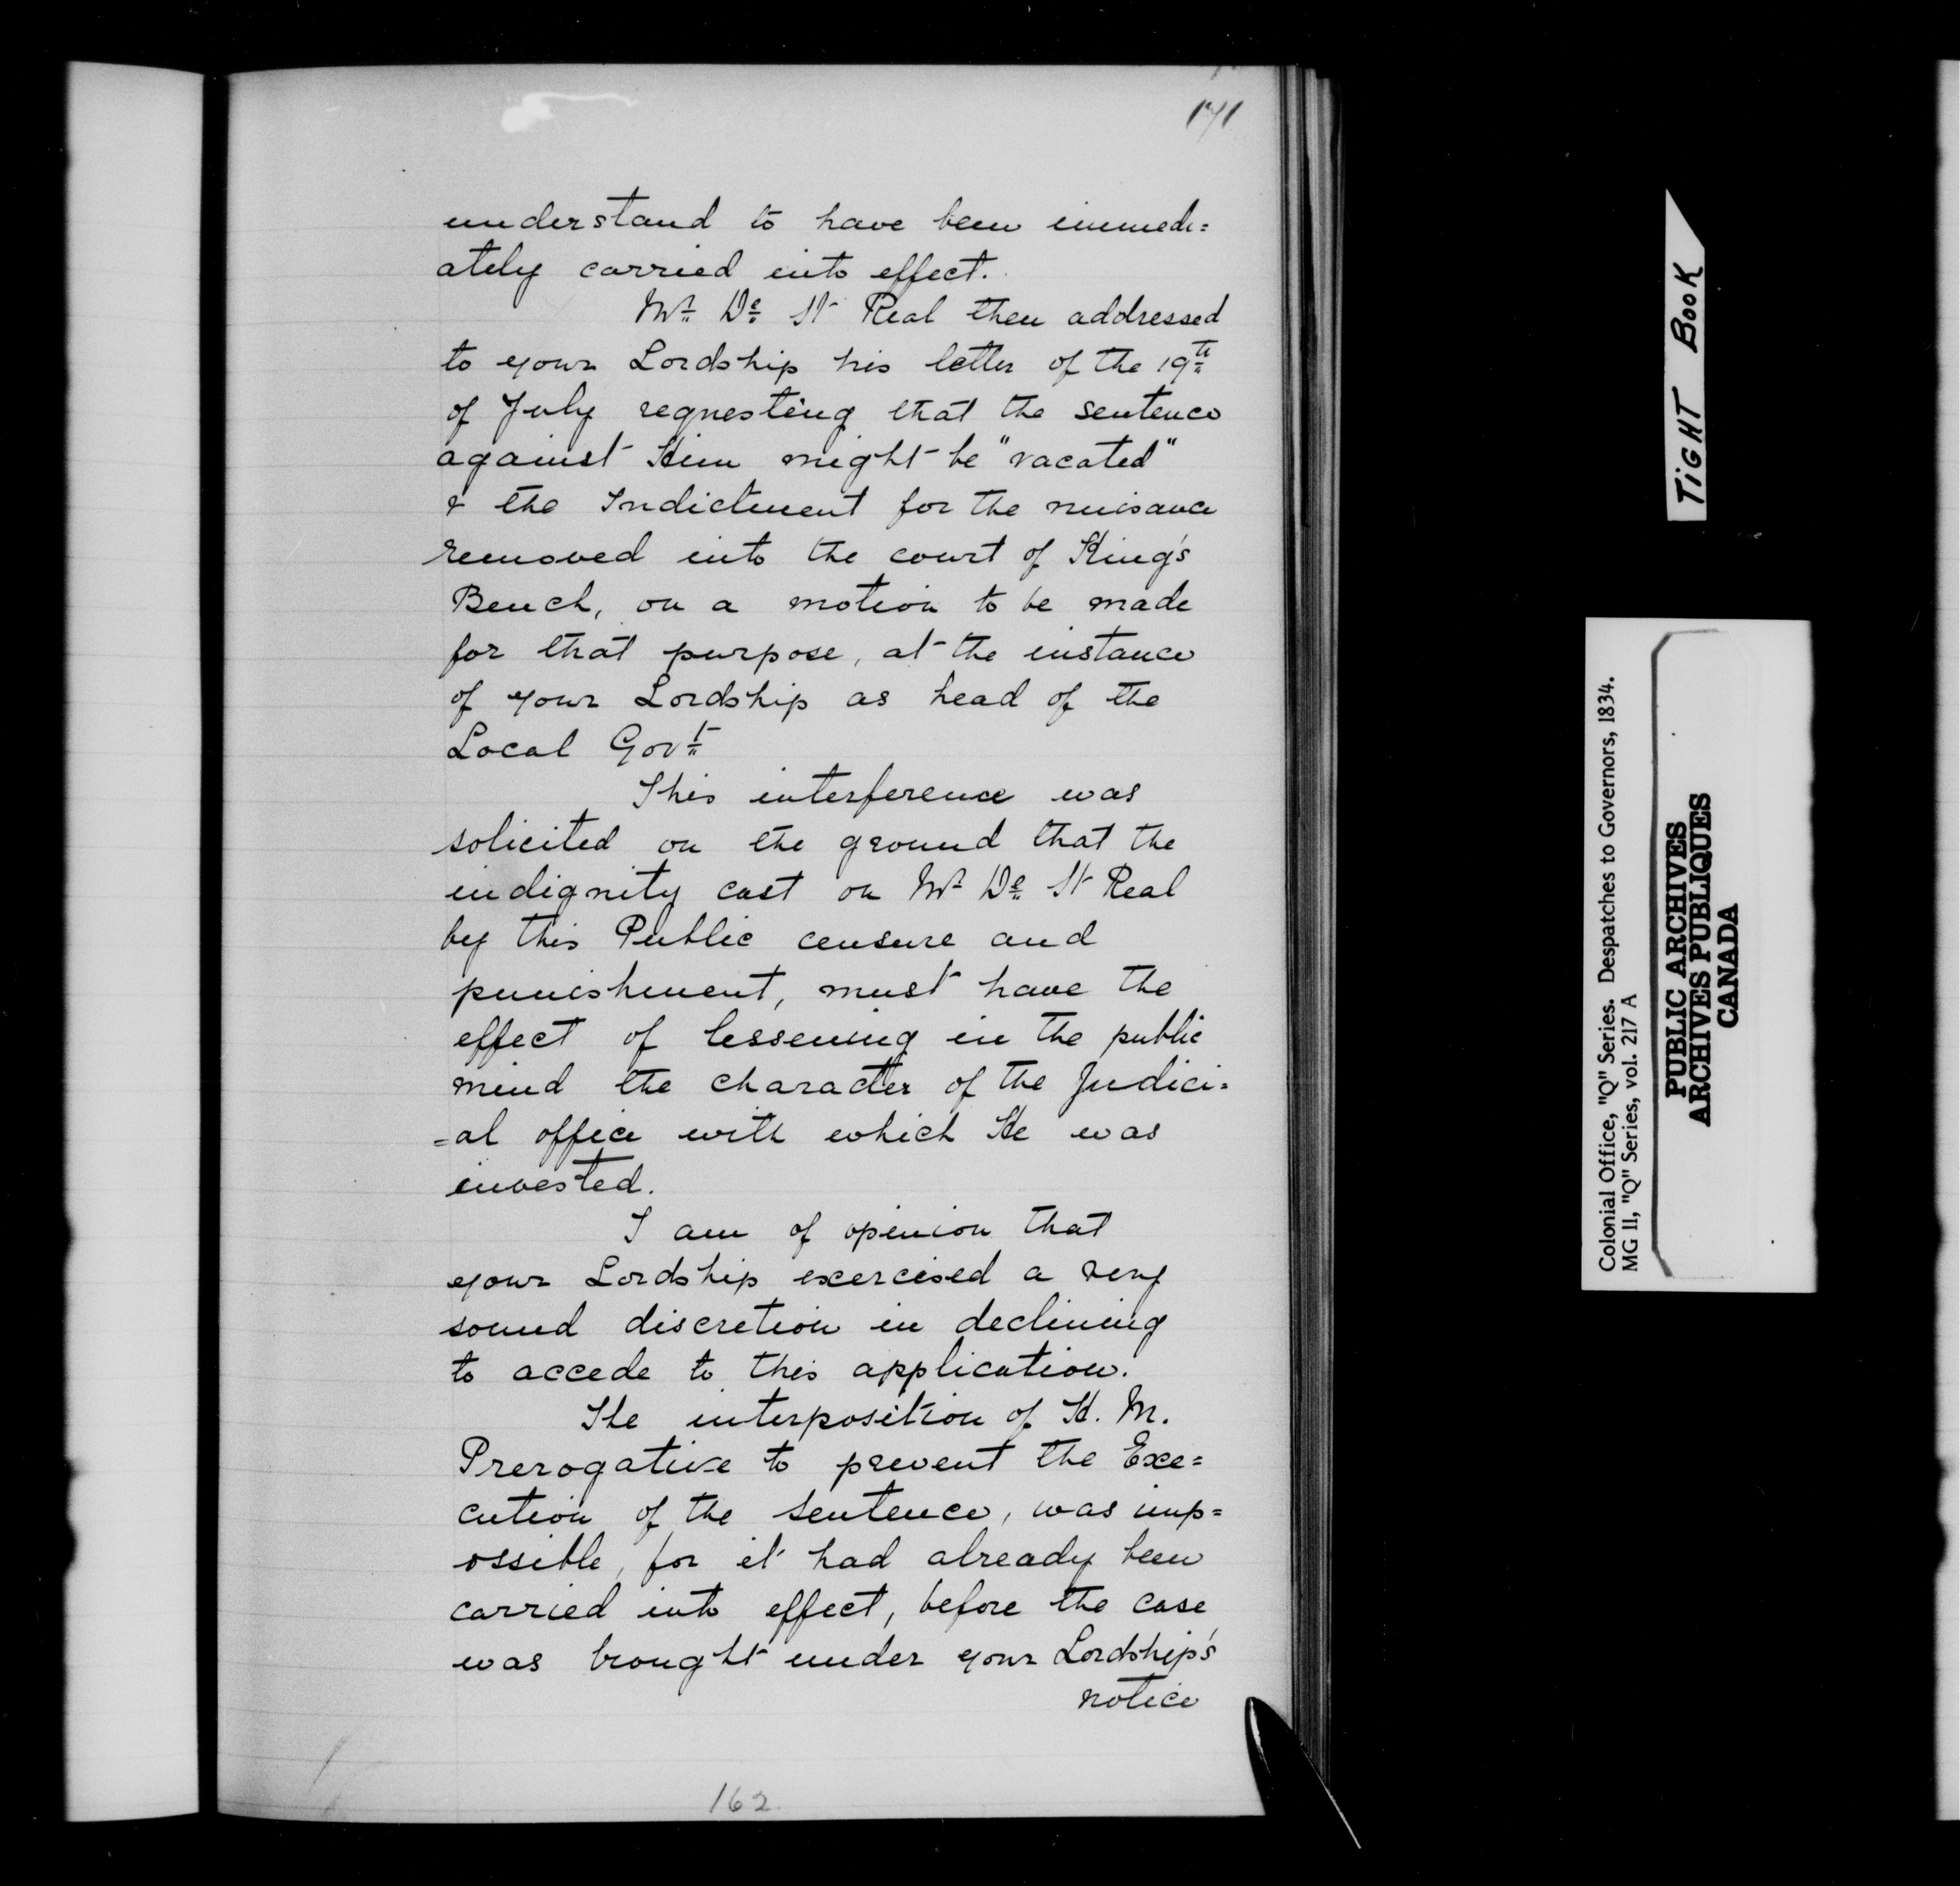 171
understand to have been immedi=
ately carried into effect.
Mr. De St Real then addressed
to your Lordship his letter of the 19th
of July requesting that the sentence
against Him might be "vacated"
& the Indictment for the nuisance
removed into the court of King's
Bench, on a motion to be made
for that purpose, at the instance
of your Lordship as head of the
Local Govt
This interference was
solicited on the ground that the
indignity cast on Mr De St Real
by this Public censure and
punishment, must have the
effect of lessening in the public
mind the character of the Judici=
=al office with which He was
invested.
I am of opinion that
your Lordship exercised a very
sound discretion in declining
to accede to this application.
The interposition of H. M.
Prerogative to prevent the Exe=
cution of the sentence, was imp=
ossible, for it had already been
carried into effect, before the case
was brought under your Lordship's
notice
162
TIGHT BOOK
Colonial Office, "Q" Series. Despatches to Governors, 1834.
MG 11, "Q" Series, vol. 217 A
PUBLIC ARCHIVES
ARCHIVES PUBLIQUES
CANADA